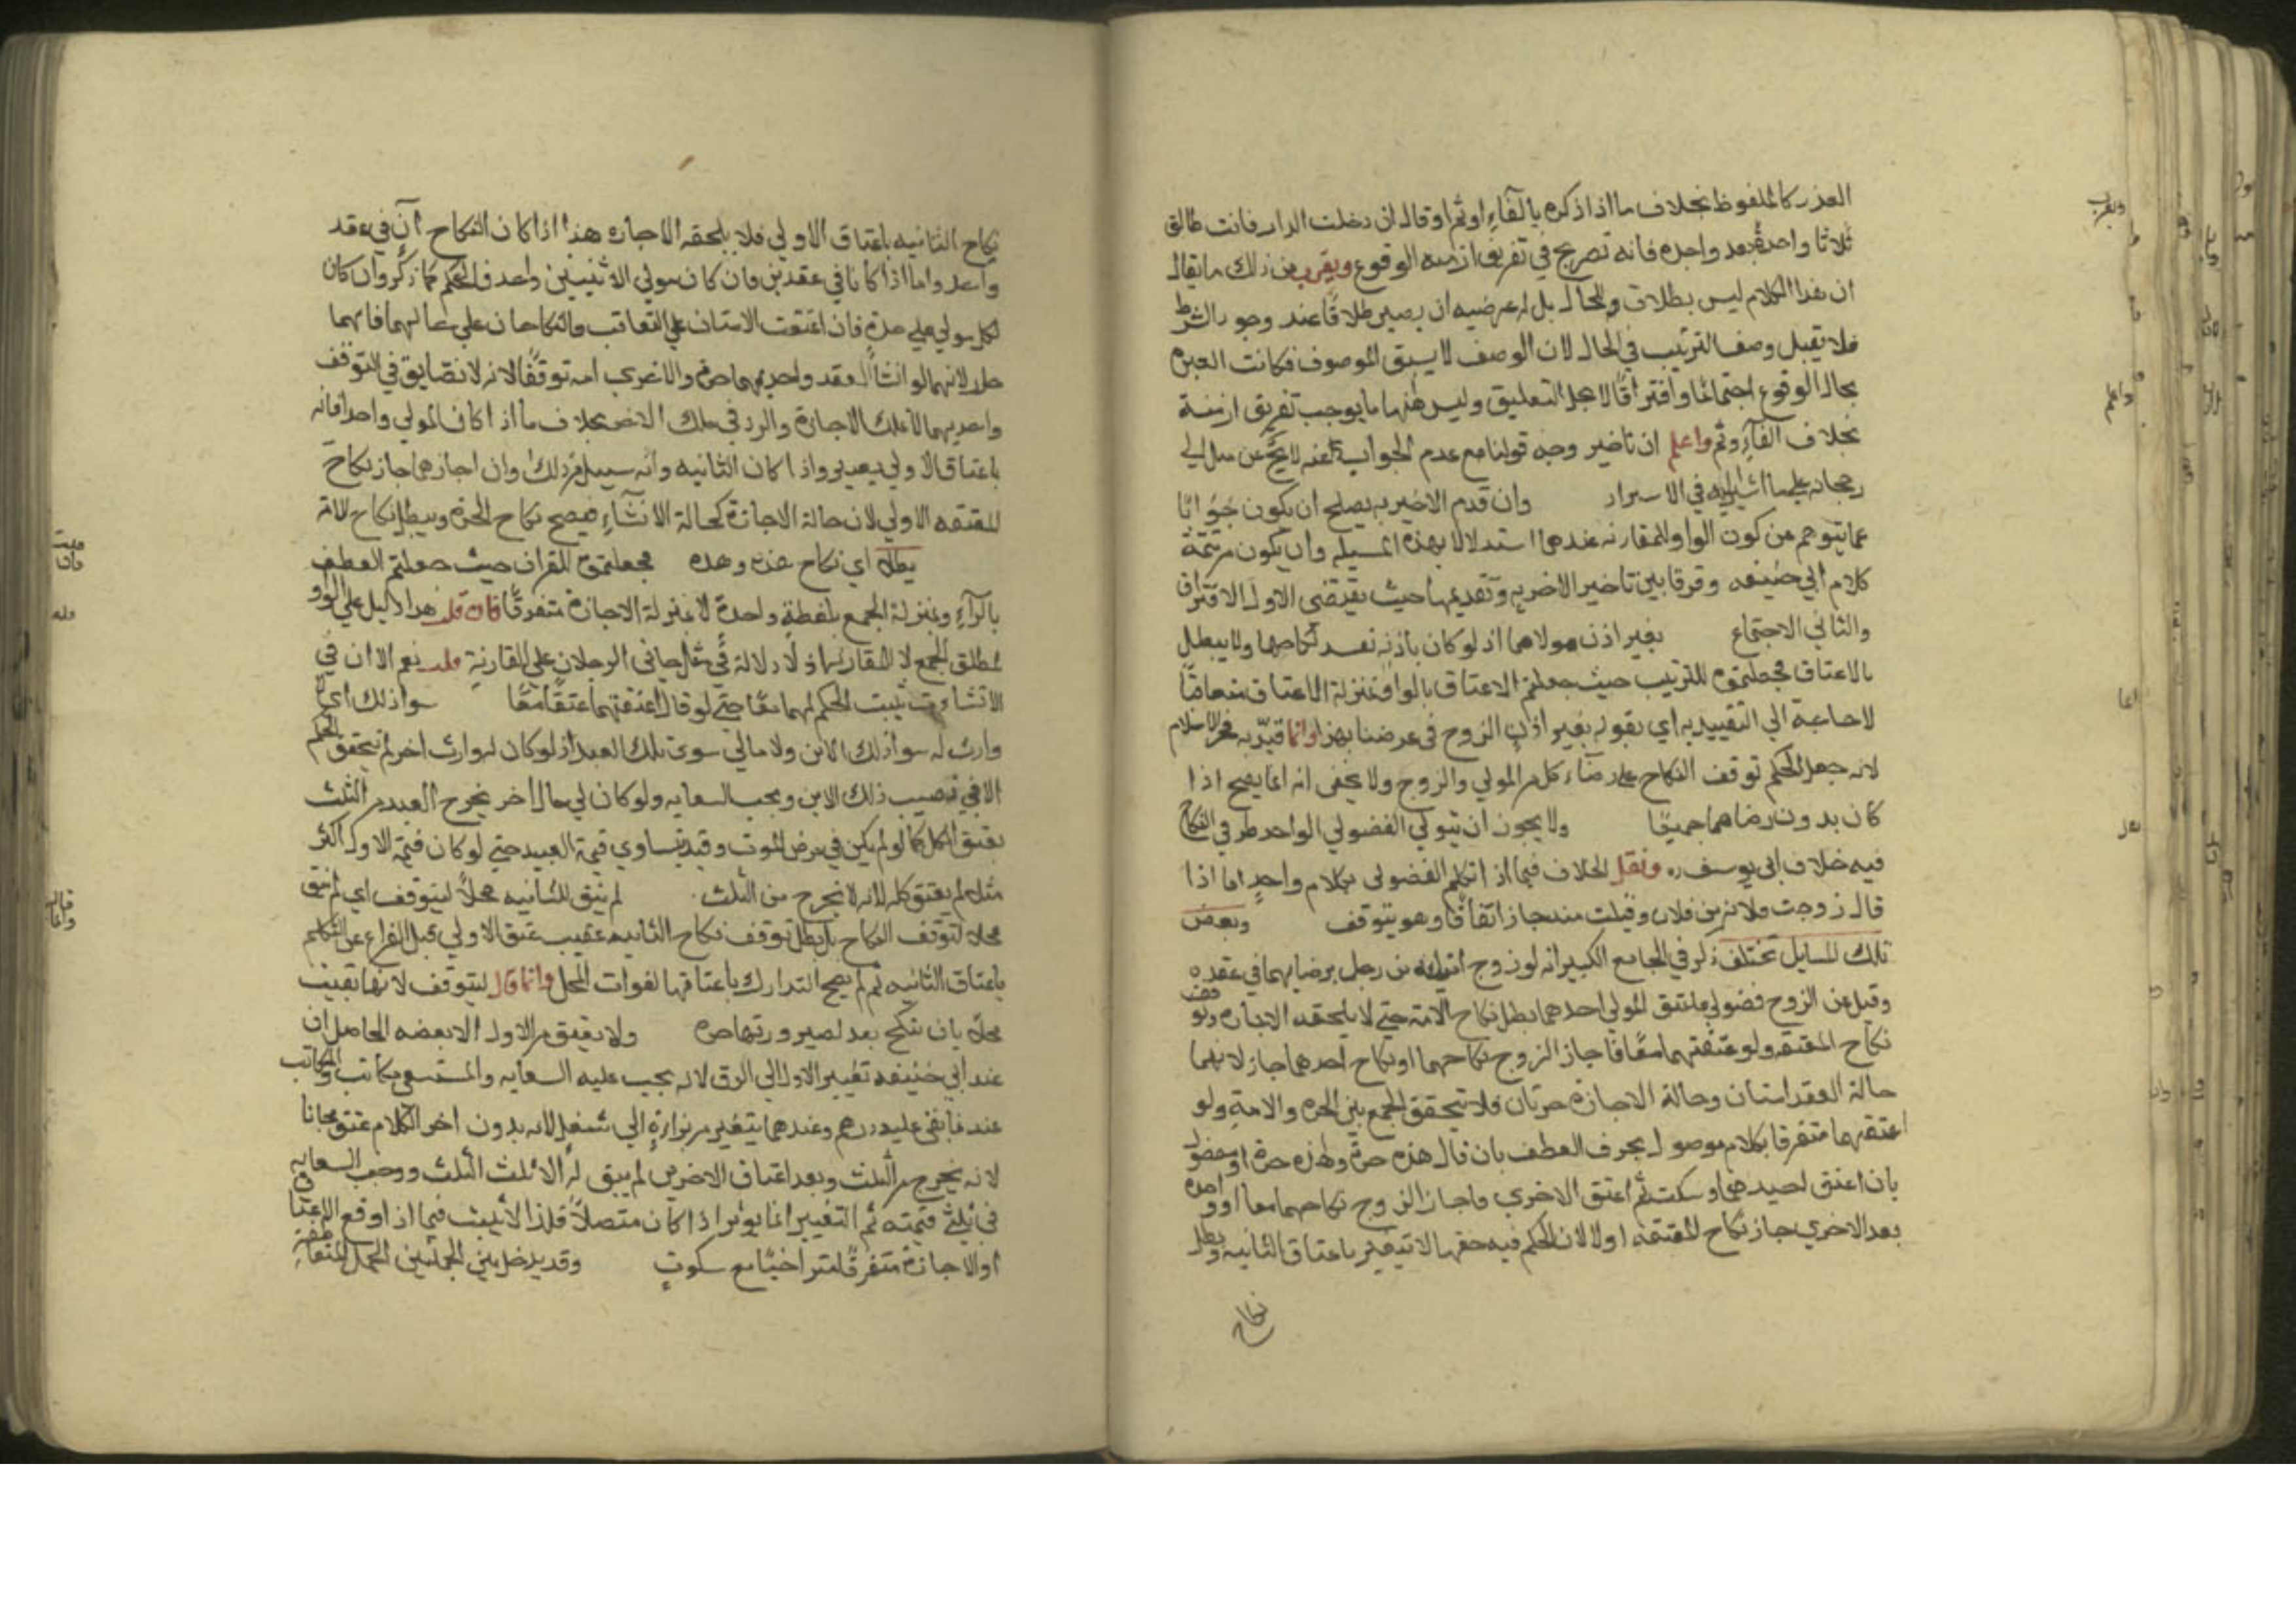 العذر كالملفوظ بخلاف ما اذا ذكره بالفاء او ثم او قال ان دخلت الدار فانت طالق
ثلاثا واحدة بعد واحده فانه تصريح في تفريق ازمنه الوقوع ويقرب من ذلك ما يقال
ان هذا الكلام ليس بطلاق في الحال بل له عرضيه ان يصير طلاقا عند وجود الشرط
فلا يقبل وصف الترتيب في الحال لان الوصف لا يسبق الموصوف فكانت العبرة
بحال الوقوع اجتماعا وافتراقا لا بحال التعليق وليس هنهنا ما يوجب تفريق ازمنة
بخلاف الفاء وثم واعلم ان تاخير وجه قولنا مع عدم الجواب عنه لا يخ عن ميل الي
رجحانه علي ما اشار اليه في الاسرار وان قدم الاخيريه يصلح ان يكون جوابا
عما يتوهم من كون الواو للمقارنه عندهما استدلالا بهذه المسيله وان يكون من تتمة
كلام ابي حنيفه وفرقا بين تاخير الاخريه وتقديمها حيث يقتضي الاول الافتراق
والثاني الاجتماع بغير اذن مولاهما اذ لو كان باذنه نفد نكاحهما ولا يبطل
بالاعتاق فجعلتموه للترتيب حيث جعلتم الاعتاق بالواو بمنزلة الاعتاق متعاقبا
لا حاجة الي التقييد به اي بقوله بغير اذن الزوج في غرضنا بهذا وانما قيد به فخر الاسلام
لانه جعل الحكم توقف النكاح علي رضاء كل من المولي والزوج ولا يخفى انه انما يصح اذا
كان بدون رضاهما جميعا ولا يجوز ان يتولي الفضولي الواحد طرفي النكاح
فيه خلاف ابي يوسف ره ونقل الخلاف فيما اذا تكلم الفضولي بكلام واحد اما اذا
قال زوجت فلانه من فلان وقبلت منه جاز اتفاقا وهو يتوقف وبعض
تلك المسايل تختلف ذكر في الجامع الكبير انه لو زوج امتيه من رجل برضاهما في عقده
وقبل عن الزوج فضولي فاعتق المولي احدهما بطل نكاح الامة حتي لا يلحقه الاجازه
نكاح المعتقه ولو عتقتهما معا فاجاز الزوج نكاحهما او نكاح احدهما جاز لانهما
حالة العقد امتان وحالة الاجازة حرتان فلا تحقق الجمع بين الحره والامة ولو
اعتقهما متفرقا بكلام موصول بحرف العطف بان قال هذه حرة وهذه حرة او مفصول
بان اعتق احديهما وسكت ثم اعتق الاخري فاجاز الزوج نكاحهما معا او واحدة
بعد الاخري جاز نكاح المعتقه اولا لان الحكم فيه حقها لا يتغير باعتاق الثانيه وبطل
نكاح
نكاح الثانيه باعتاق الاولي فلا يلحقه الاجازه هذا اذا كان النكاح ان في عقد
واحد واما اذا كانا في عقدين فان كان مولي الاثنيين واحد فالحكم كما ذكر وان كان
لكل مولي علي حدة فان اعتقت الامتان علي التعاقب فالنكاحان علي حالهما فايهما
لانهما لو انشا العقد واحديهما حرة والاخري امه توقفا لانه لا تضايق في التوقف
واحديهما لا يملك الاجازة والرد في ملك الاخر بخلاف ما اذا كان المولي واحدا فانه
باعتاق الاولي واذا كان الثانيه وانه سبيل من ذلك وان اجازهما جاز نكاح
المعتقه الاولي لان حالة الاجازة كحالة الانشاء فيصح نكاح الحرة ويبطل نكاح الامة
بطلا اي نكاح هذه وهذه فجعلتموه للقران حيث جعلتم العطف
بالواو بمنزلة الجمع بلفظة واحدة لا بمنزلة الاجازة متفرقا فان قلت هذا دليل علي الواو
لمطلق الجمع لا للمقارنه اذ لا دلالة في مثل جاني الرجلان علي المقارنة قلت نعم الا ان في
الانشاءات يثبت الحكم لهما معا حتي لو قال اعتقتهما عتقا معا سوا ذلك اي
وارث له سوا ذلك الابن ولا مالي سوي تلك العبد اذ لو كان له وارث اخر لم يتحقق الحكم
الا في نصيب ذلك الابن ويجب السعايه ولو كان لي مال اخر يخرج العبد من الثلث
يعتق الكل كما لو لم يكن في مرض الموت وقيد بتساوي قيمة العبيد حتي لو كان قيمة الاول اكثر
مثله لم يعتق كله لانه لا يخرج من الثلث لم يبق للثانيه محلا ليتوقف اي لم يبق
محلا لتوقف النكاح بل بطل توقف نكاح الثانيه عقيب عتق الاولي قبل الفراغ عن التكلم
باعتاق الثانيه ثم لم يصح التدارك باعتاقها لفوات المحل وانما قال ليتوقف لانها بقيت
محلا بان تنكح بعد لصيرورتها حره ولا يعتق من الاول الا بعضه الحاصل ان
عند ابي حنيفه تغيير الاول الي الرق لانه يجب عليه السعايه والمستسعي مكاتب والمكاتب
عبد ما بقي عليه درهم وعندهما يتغير من براءة الي شغل لانه بدون اخر الكلام عتق مجانا
لانه يخرج من الثلث وبعد اعتاق الاخرين لم يبق له الا ثلث الثلث ووجب السعايه
في ثلثي قيمته ثم التغيير انما يؤثر اذا كان متصلا فلذا لا يثبت فيما اذا اوقع الاعتاق
او الاجازة متفرقا متراخيا مع سكوت وقد يدخل بين الجملتين الجمل المتعاطفة